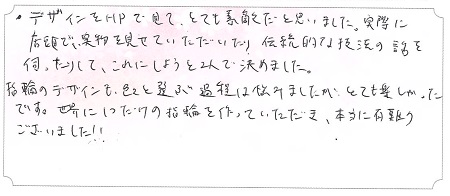 ・デザインをHPで見て、とても素敵だと思いました。実際に
店頭で、実物を見せていただいたり、伝統的な技法の話を
伺ったりして、これにしようと2人で決めました。
指輪のデザインも、色々と選ぶ過程は悩みましたが、とても楽しかった
です。世界に1つだけの指輪を作っていただき、本当に有難う
ございました!!